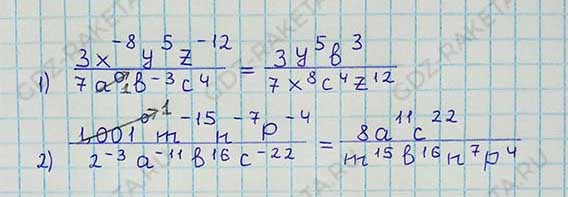 1) 3x⁻⁸y⁵z⁻¹² / 7a⁰b⁻³c⁴ = 3y⁵b³ / 7x⁸c⁴z¹²
1
1
2) 1,001⁰m⁻¹⁵n⁻⁷p⁻⁴ / 2⁻³a⁻¹¹b¹⁶c⁻²² = 8a¹¹c²² / m¹⁵b¹⁶n⁷p⁴
GDZ-RAKETA.RU